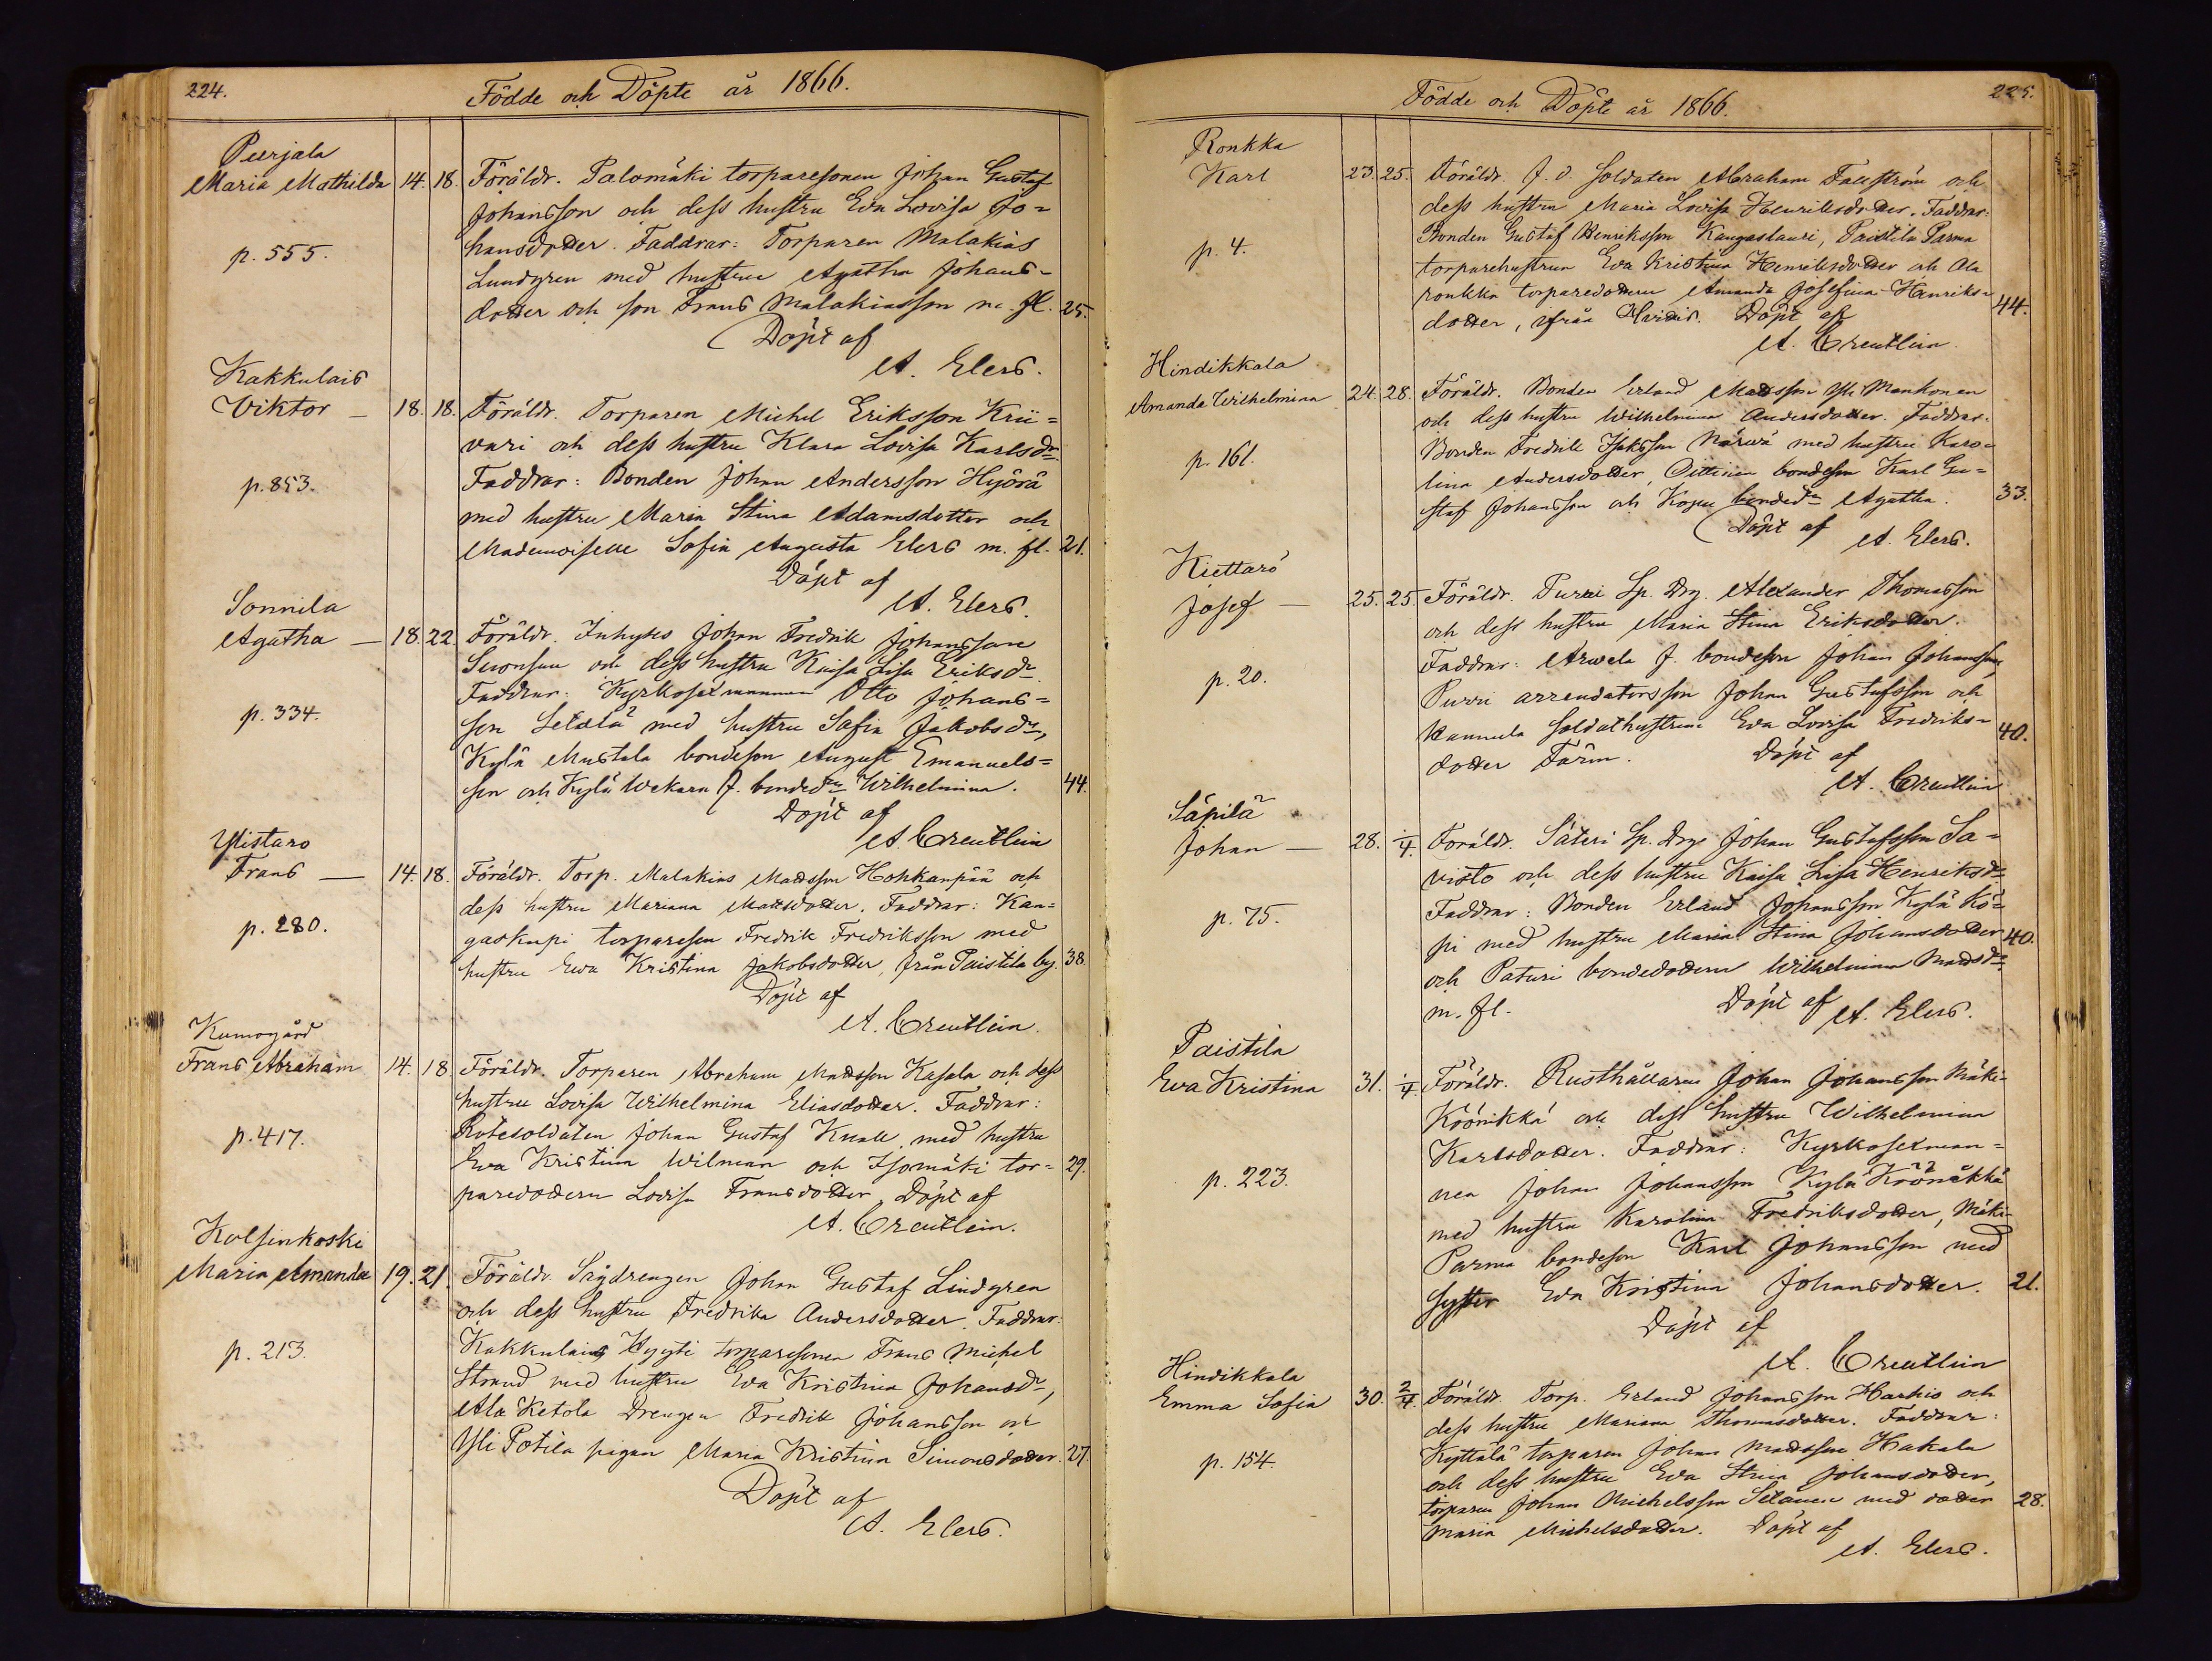 224.
Födde och Döpte år 1866.
Peerjala
Maria Mathilda 14. 18. Föräldr. Palomäki torparesonen Johan Gustaf
Johansson och dess hustru Eva Lovisa Jo=
hansdotter. Faddrar: Torparen Malakias
p. 555.
Lundgren med hustru Agatha Johans-
dotter och son Frans Malakiasson m. fl. 25.
Döpt af
A. Elers.
Kakkulais
Viktor — 18. 18. Föräldr. Torparen Michel Eriksson Krii=
vari och dess hustru Klara Lovisa Karlsdr.
p. 853.
Faddrar: Bonden Johan Andersson Hyörä
med hustru Maria Stina Adamsdotter och
Mademoiselle Sofia Augusta Elers m. fl. 21.
Döpt af
A. Elers.
Sonnila
Agatha — 18. 22. Föräldr. Inhyses Johan Fredrik Johansson
och dess hustru Kaisa Lisa Eriksdr.
Faddrar: Kyrkosexmannen Otto Johans=
p. 334.
son Setälä med hustru Sofia Jakobsdr,
Kylä Mustala bondeson August Emanuels=
son och Kylä Wekara f. bondedr Wilhelmina. 44.
Döpt af
A. Creutlein
Ylistaro
Frans — 14. 18. Föräldr. Torp. Malakias Mattsson Hohkanpää och
dess hustru Mariana Mattsdotter. Faddrar: Kan=
p. 280.
gaskupi torpareson Fredrik Fredriksson med
hustru Eva Kristina Jakobsdotter, från Paistila by. 38.
Döpt af
A. Creutlein.
Kumogård
Frans Abraham 14. 18. Föräldr. Torparen Abraham Mattsson Kasala och dess
hustru Lovisa Wilhelmina Eliasdotter. Faddrar:
p. 417.
Rotesoldaten Johan Gustaf Knall med hustru
Eva Kristina Wilman och Isomäki tor= 29.
paredottern Lovisa Fransdotter. Döpt af
A. Creutlein.
Kolsinkoski
Maria Amanda 19. 21. Föräldr. Sågdrengen Johan Gustaf Lindgren
och dess hustru Fredrika Andersdotter. Faddrar:
p. 213.
Kakkulais Hyyti torparesonen Frans Michel
Strand med hustru Eva Kristina Johansdr,
Ala Ketola Drengen Fredrik Johansson och
Yli Potila pigan Maria Kristina Simonsdotter. 27.
Döpt af
A. Elers.
225.
Födde och Döpte år 1866.
Ronkka
Karl 23. 25. Föräldr. f. d. Soldaten Abraham Fallström och
dess hustru Maria Lovisa Henriksdotter. Faddrar:
p. 4.
Bonden Gustaf Henriksson Kangaslauri, Paistila Parma
torparehustrun Eva Kristina Henriksdotter och Ala
ronkka torparedottern Amanda Josefina Henriks= 44.
dotter, från Hvittis. Döpt af
A. Creutlein.
Hindikkala
Amanda Wilhelmina 24. 28. Föräldr. Bonden Erland Mattsson Yli Mankonen
och dess hustru Wilhelmina Andersdotter. Faddrar:
p. 161.
Bonden Fredrik Isaksson Närvä med hustru Karo=
lina Andersdotter, Oittinen bondeson Karl Gu=
staf Johansson och bondedr Agatha. 33.
Döpt af
A. Elers.
Kiettarö
Josef — 25. 25. Föräldr. Purri Sp. Drg. Alexander Thomasson
och dess hustru Maria Stina Eriksdotter.
p. 20.
Faddrar: Arvela f. bondeson Johan Johansson,
Purri arrendatorsson Johan Gustafsson och
soldathustrun Eva Lovisa Fredriks= 40.
dotter Färm. Döpt af
A. Creutlein
Säpilä
Johan — 28. 1/4. Föräldr. Säteri Sp. Drg. Johan Gustafsson Sa=
visto och dess hustru Kaisa Lisa Henriksdr.
p. 75.
Faddrar: Bonden Erland Johansson Kylä Kö=
pi med hustru Maria Stina Johansdotter 40.
och Paturi bondedottern Wilhelmina Mattsdr.
m. fl. Döpt af A. Elers.
Paistila
Eva Kristina 31. 1/4. Föräldr. Rusthållaren Johan Johansson Mäki=
Krönikkä och dess hustru Wilhelmina
p. 223.
Karlsdotter. Faddrar: Kyrkosexman=
nen Johan Johansson Kylä Krönikkä
med hustru Karolina Fredriksdotter, Mäki=
Parma bondeson Karl Johansson med
syster Eva Kristina Johansdotter. 21.
Döpt af
A. Creutlein
Hindikkala
Emma Sofia 30. 2/4. Föräldr. Torp. Erland Johansson Harhio och
dess hustru Mariana Thomasdotter. Faddrar:
p. 154.
Kyttälä torparen Johan Mattsson Hakala
och dess hustru Eva Stina Johansdotter,
torparen Johan Michelsson Setänen med dotter 28.
Maria Michelsdotter. Döpt af
A. Elers.